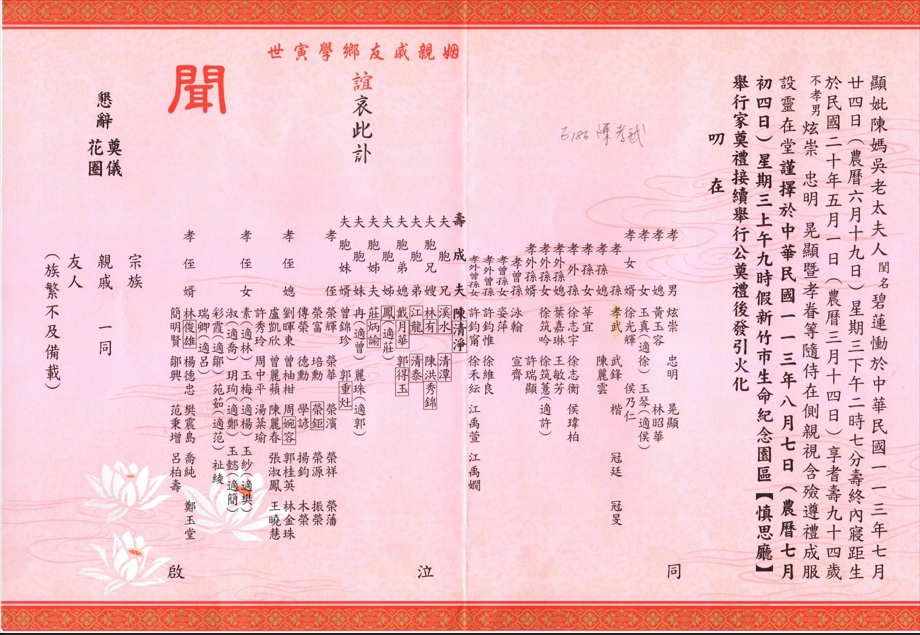 顯妣陳媽吳老太夫人閨名碧蓮慟於中華民國一一三年七月
廿四日(農曆六月十九日)星期三下午二時七分壽終內寢距生
於民國二十年五月一日(農曆三月十四日)享耆壽九十四歲
不孝男炫崇 忠明 晃顯暨孝眷等隨侍在側親視含殮遵禮成服
設靈在堂謹擇於中華民國一一三年八月七日(農曆七月
初四日)星期三上午九時假新竹市生命紀念園區【慎思廳】
舉行家奠禮接續舉行公奠禮後發引火化
叨 在
姻親戚友鄉學寅世
誼哀此訃
聞
懇辭 奠儀 花圈
E186 陳孝武
孝男 炫崇 忠明 晃顯
孝媳 黃玉容 林昭華
孝女 玉真(適徐) 玉琴(適侯)
孝女婿 徐光輝 侯乃仁
孝孫 孝武 武鋒 楷 冠廷 冠旻
孝孫媳 陳麗雲
孝孫女 莘宜
孝外孫 徐志宇 徐志衡 侯瑋柏
孝外孫媳 葉嘉琳 王敏芳
孝外孫女 徐筑吟 徐筑薏(適許)
孝外孫女婿 許瑞顯
孝曾孫 泳翰 宣齊
孝曾孫女 姿萍
孝外曾孫 許鈞惟 徐維良
孝外曾孫女 許鈞甯 徐禾紜 江禹萱 江禹嫺
壽成夫 陳清淨
夫胞兄 溪水 清潭
夫胞兄嫂 林有 陳洪秀錦
夫胞弟 江龍 清泰
夫胞弟媳 戴月華 郭得玉
夫胞姊 鳳(適莊)
夫胞姊夫 莊炳諭
夫胞妹 冉(適曾) 麗珠(適郭)
夫胞妹婿 曾錦珍 郭重灶
孝侄 榮輝 榮華 榮濱 榮祥 榮藩
榮富 培勳 榮鉅 榮源 振榮
傳榮 德勳 學諺 揚鈞 木榮
孝侄媳 劉暉東 曾柚柑 周婉容 郭桂英 林金珠
盧凱欣 曾麗蘋 陳麗春 張淑鳳 王曉慧
許秀玲 周中平 湯菜瑜
孝侄女 素(適林) 玉梅(適楊) 玉紗(適樊)
淑(適喬) 玥玓(適鄭) 玉懿(適簡)
彩霞(適鄒) 苑茹(適范) 祉綾
瑞卿(適呂)
孝侄女婿 林俊雄 楊德忠 樊震島 喬純 鄭玉堂
簡明賢 鄒興 范秉增 呂柏壽
同 泣 啟
宗族
親戚 一同
友人
(族繁不及備載)